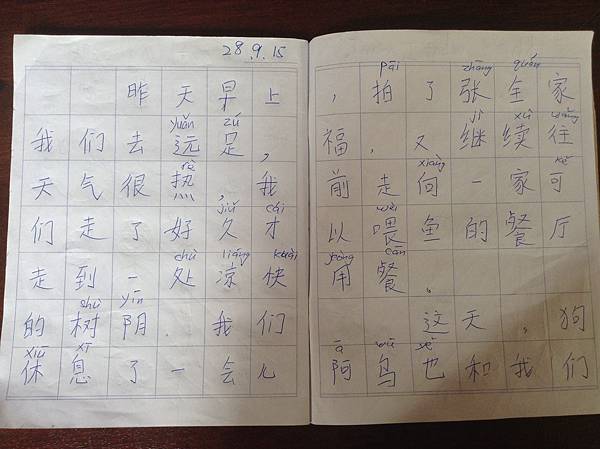 28.9.15
昨天早上
yuǎn zú
我们去远足，
rè
天气很热，我
jiǔ cái
们走了好久才
chù liáng kuài
走到一处凉快
shù yīn
的树阴．我们
xiū xī
休息了一会儿
pāi zhāng quán
，拍了张全家
jì xù wǎng
福，又继续往
xiàng kě
前走向一家可
wèi
以喂鱼的餐厅
yòng cān
用餐。
这天，狗
ā wū yě
阿乌也和我们